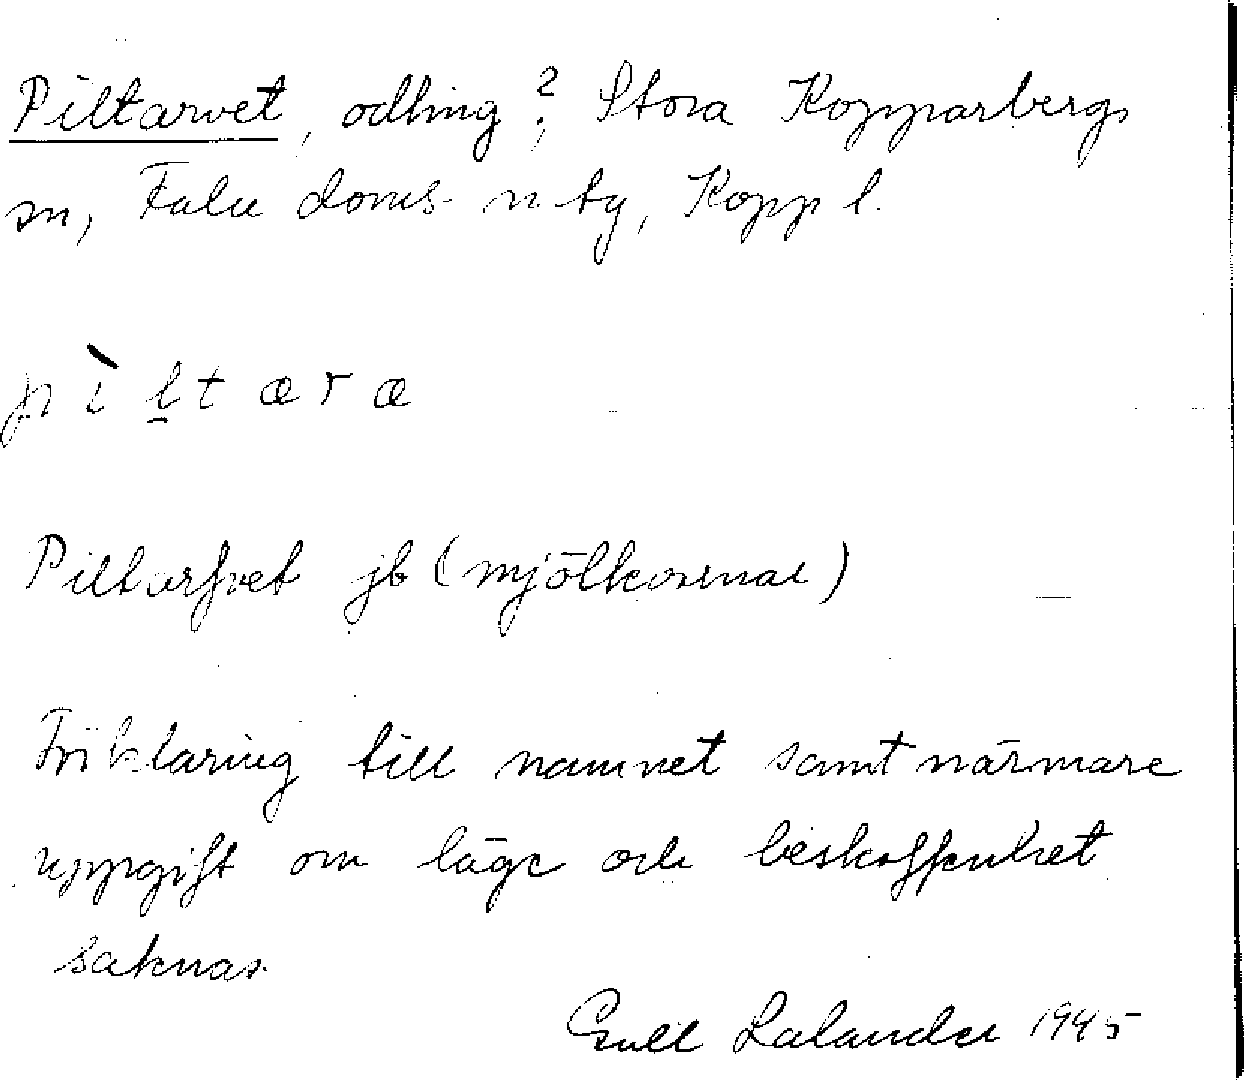 Piltarvet, odling?; Stora Kopparbergs
sn, Falu doms. n. tg, Kopp l.
pìltæræ
Piltarfvet jb (mjölkorunar)
Förklaring till namnet samt närmare
uppgift om läge och beskaffenhet
saknas.
Gull Lalander 1945